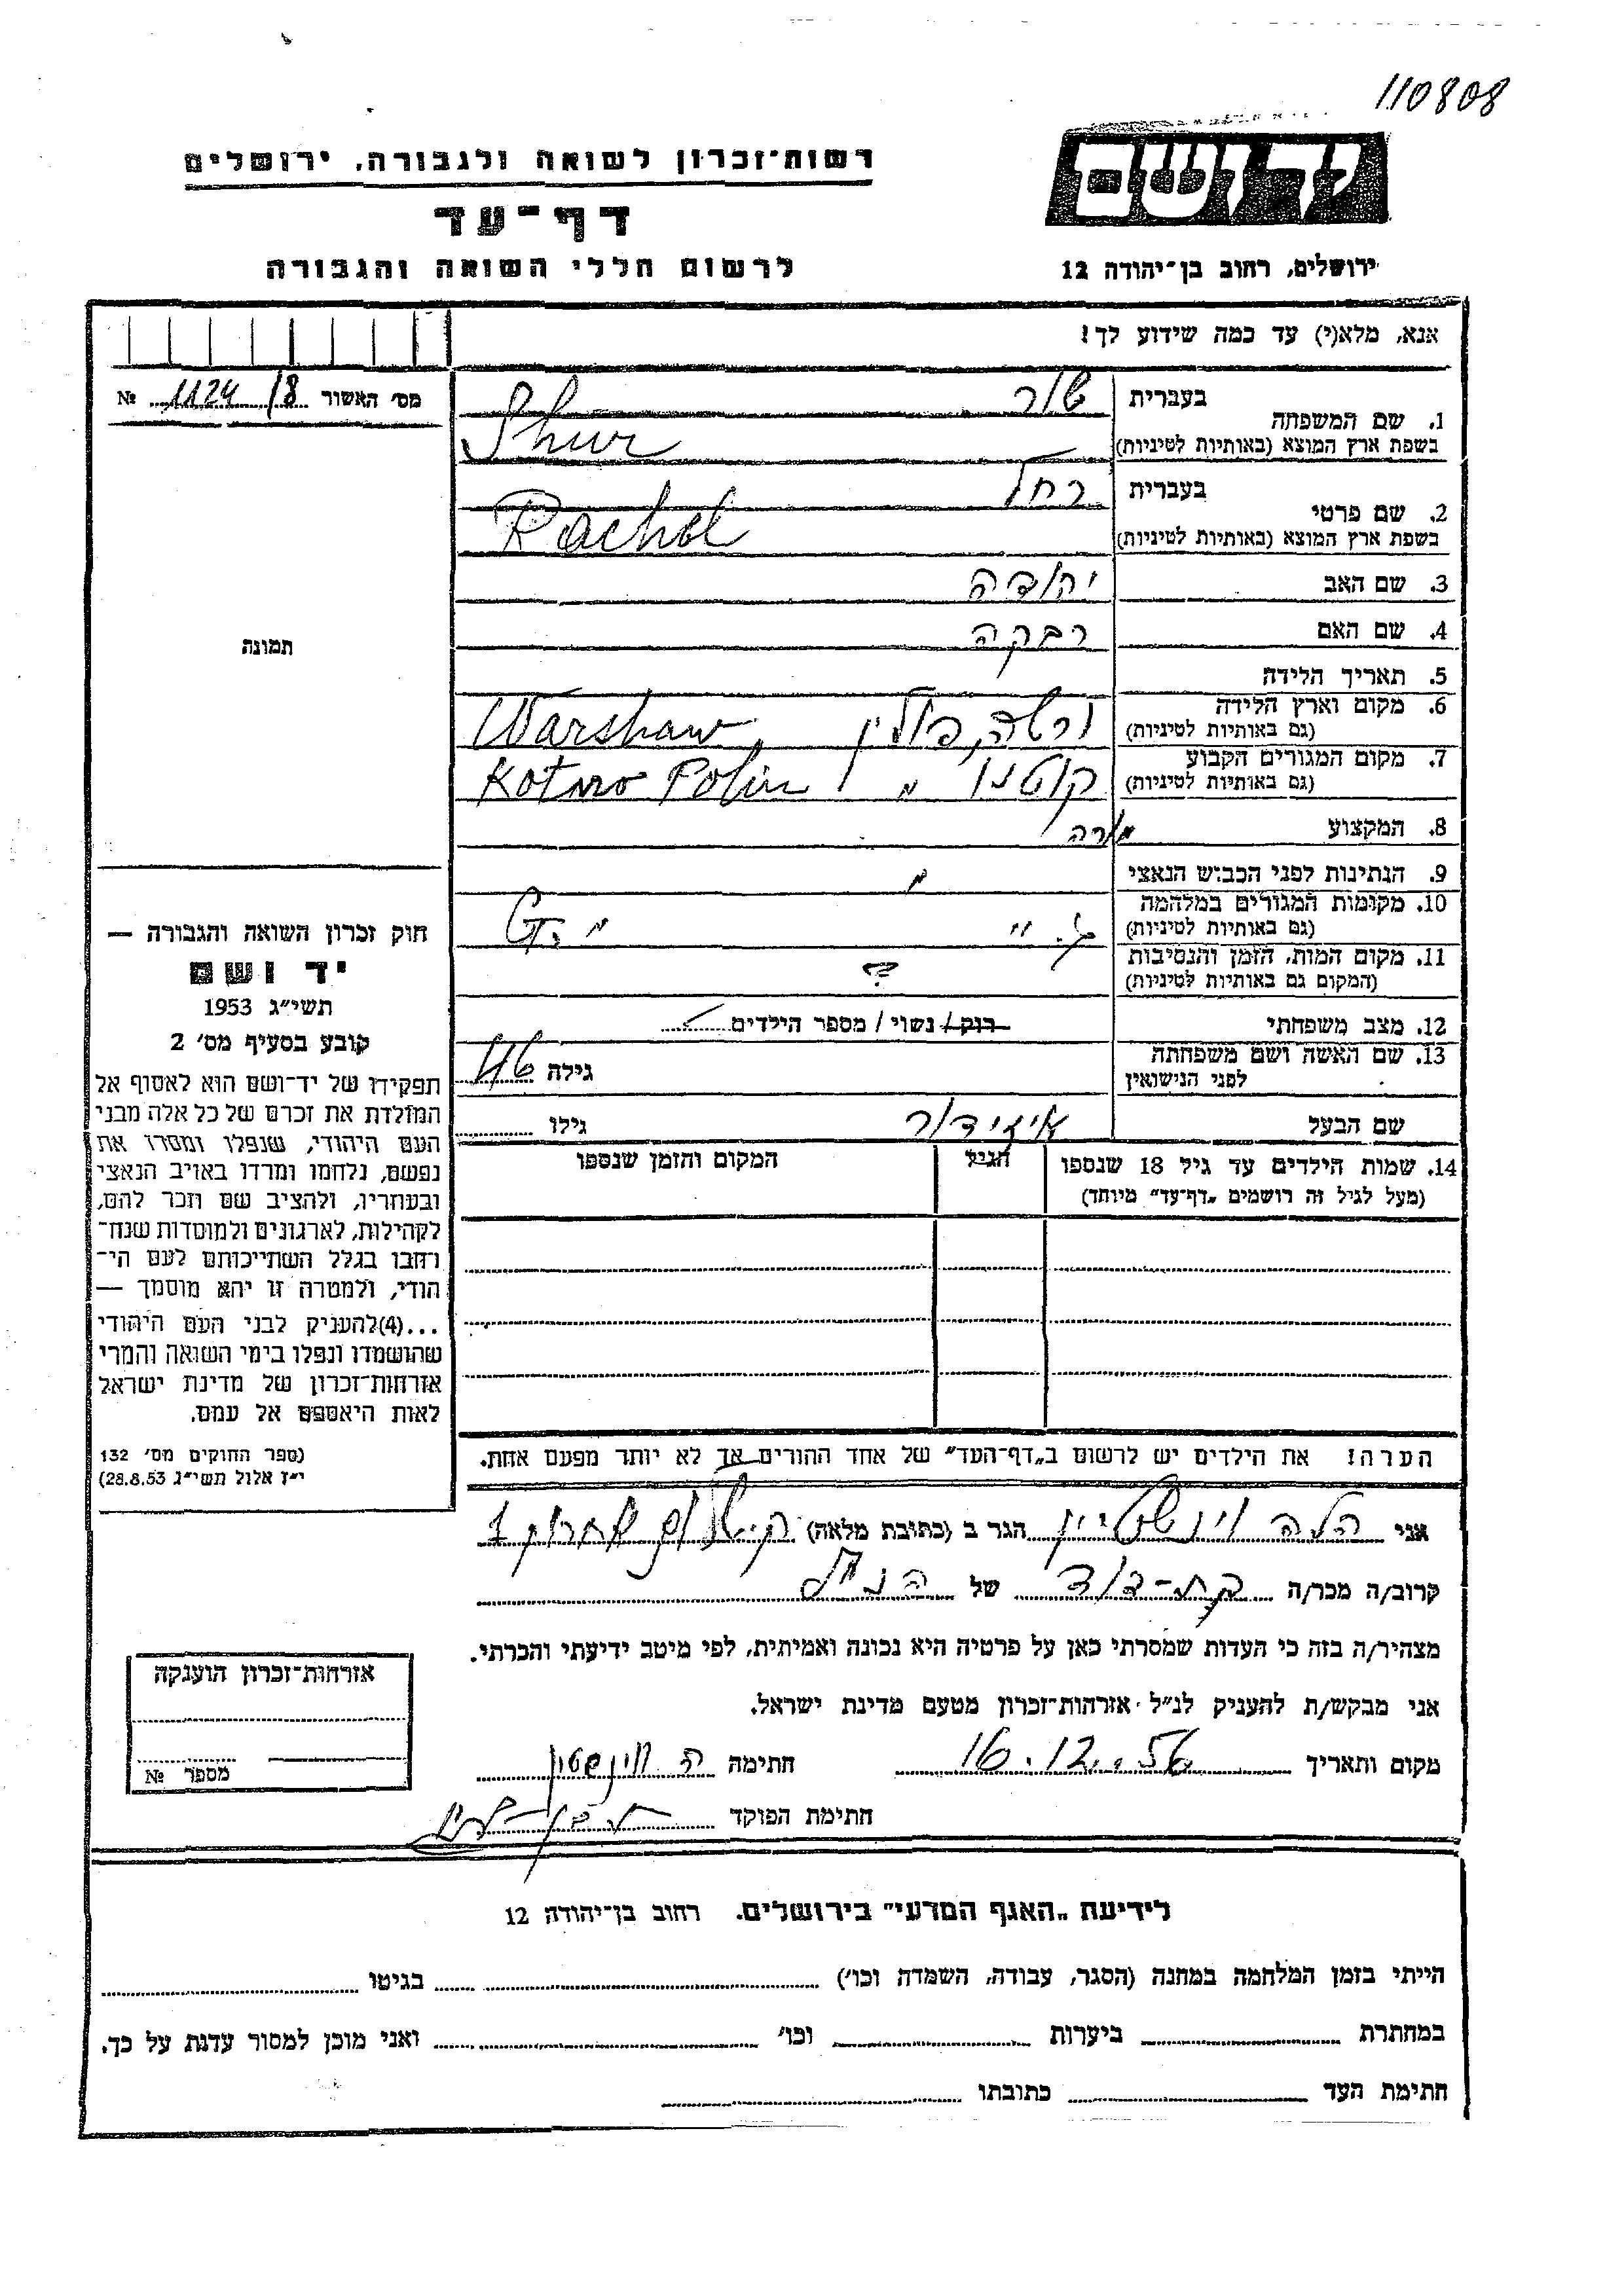 110808
יד ושם
רשות־זכרון לשואה ולגבורה, ירושלים
דף־עד
לרשום חללי השואה והגבורה
ירושלים, רחוב בן־יהודה 12
אנא, מלא(י) עד כמה שידוע לך!
מס' האשור 1124/8 №
תמונה
1. שם המשפחה
בעברית שור
בשפת ארץ המוצא (באותיות לטיניות) Shur
2. שם פרטי
בעברית רחל
בשפת ארץ המוצא (באותיות לטיניות) Rachel
3. שם האב יהודה
4. שם האם רבקה
5. תאריך הלידה
6. מקום וארץ הלידה
(גם באותיות לטיניות) ורשה, פולין Warshaw
7. מקום המגורים הקבוע
(גם באותיות לטיניות) קוטנו " Kotno Polin
8. המקצוע מורה
9. הנתינות לפני הכבוש הנאצי "
10. מקומות המגורים במלחמה
(גם באותיות לטיניות)
11. מקום המות, הזמן והנסיבות
(המקום גם באותיות לטיניות) ?
12. מצב משפחתי רוק / נשוי / מספר הילדים
13. שם האשה ושם משפחתה
לפני הנישואין
גילה 46
שם הבעל איזידור גילו
14. שמות הילדים עד גיל 18 שנספו
(מעל לגיל זה רושמים „דף־עד" מיוחד)
הגיל
המקום והזמן שנספו
הערה! את הילדים יש לרשום ב„דף־העד" של אחד ההורים אך לא יותר מפעם אחת.
חוק זכרון השואה והגבורה —
יד ושם
תשי"ג 1953
קובע בסעיף מס' 2
תפקידו של יד־ושם הוא לאסוף אל
המולדת את זכרם של כל אלה מבני
העם היהודי, שנפלו ומסרו את
נפשם, נלחמו ומרדו באויב הנאצי
ובעוזריו, ולהציב שם וזכר להם,
לקהילות, לארגונים ולמוסדות שנח־
רבו בגלל השתייכותם לעם הי־
הודי, ולמטרה זו יהא מוסמך —
...(4)להעניק לבני העם היהודי
שהושמדו ונפלו בימי השואה והמרי
אזרחות־זכרון של מדינת ישראל
לאות היאספם אל עמם.
(ספר החוקים מס' 132
י"ז אלול תשי"ג 28.8.53)
אני הלה וינשטיין הגר ב (כתובת מלאה)
קרוב/ה מכר/ה בת-דוד של הנ"ל
מצהיר/ה בזה כי העדות שמסרתי כאן על פרטיה היא נכונה ואמיתית, לפי מיטב ידיעתי והכרתי.
אני מבקש/ת להעניק לנ"ל אזרחות־זכרון מטעם מדינת ישראל.
מקום ותאריך 16.12.56 חתימה ה וינשטין
חתימת הפוקד
אזרחות־זכרון הוענקה
מספר №
לידיעת „האגף המדעי" בירושלים. רחוב בן־יהודה 12
הייתי בזמן המלחמה במחנה (הסגר, עבודה, השמדה וכו') בגיטו
במחתרת ביערות וכו' ואני מוכן למסור עדות על כך.
חתימת העד כתובתו